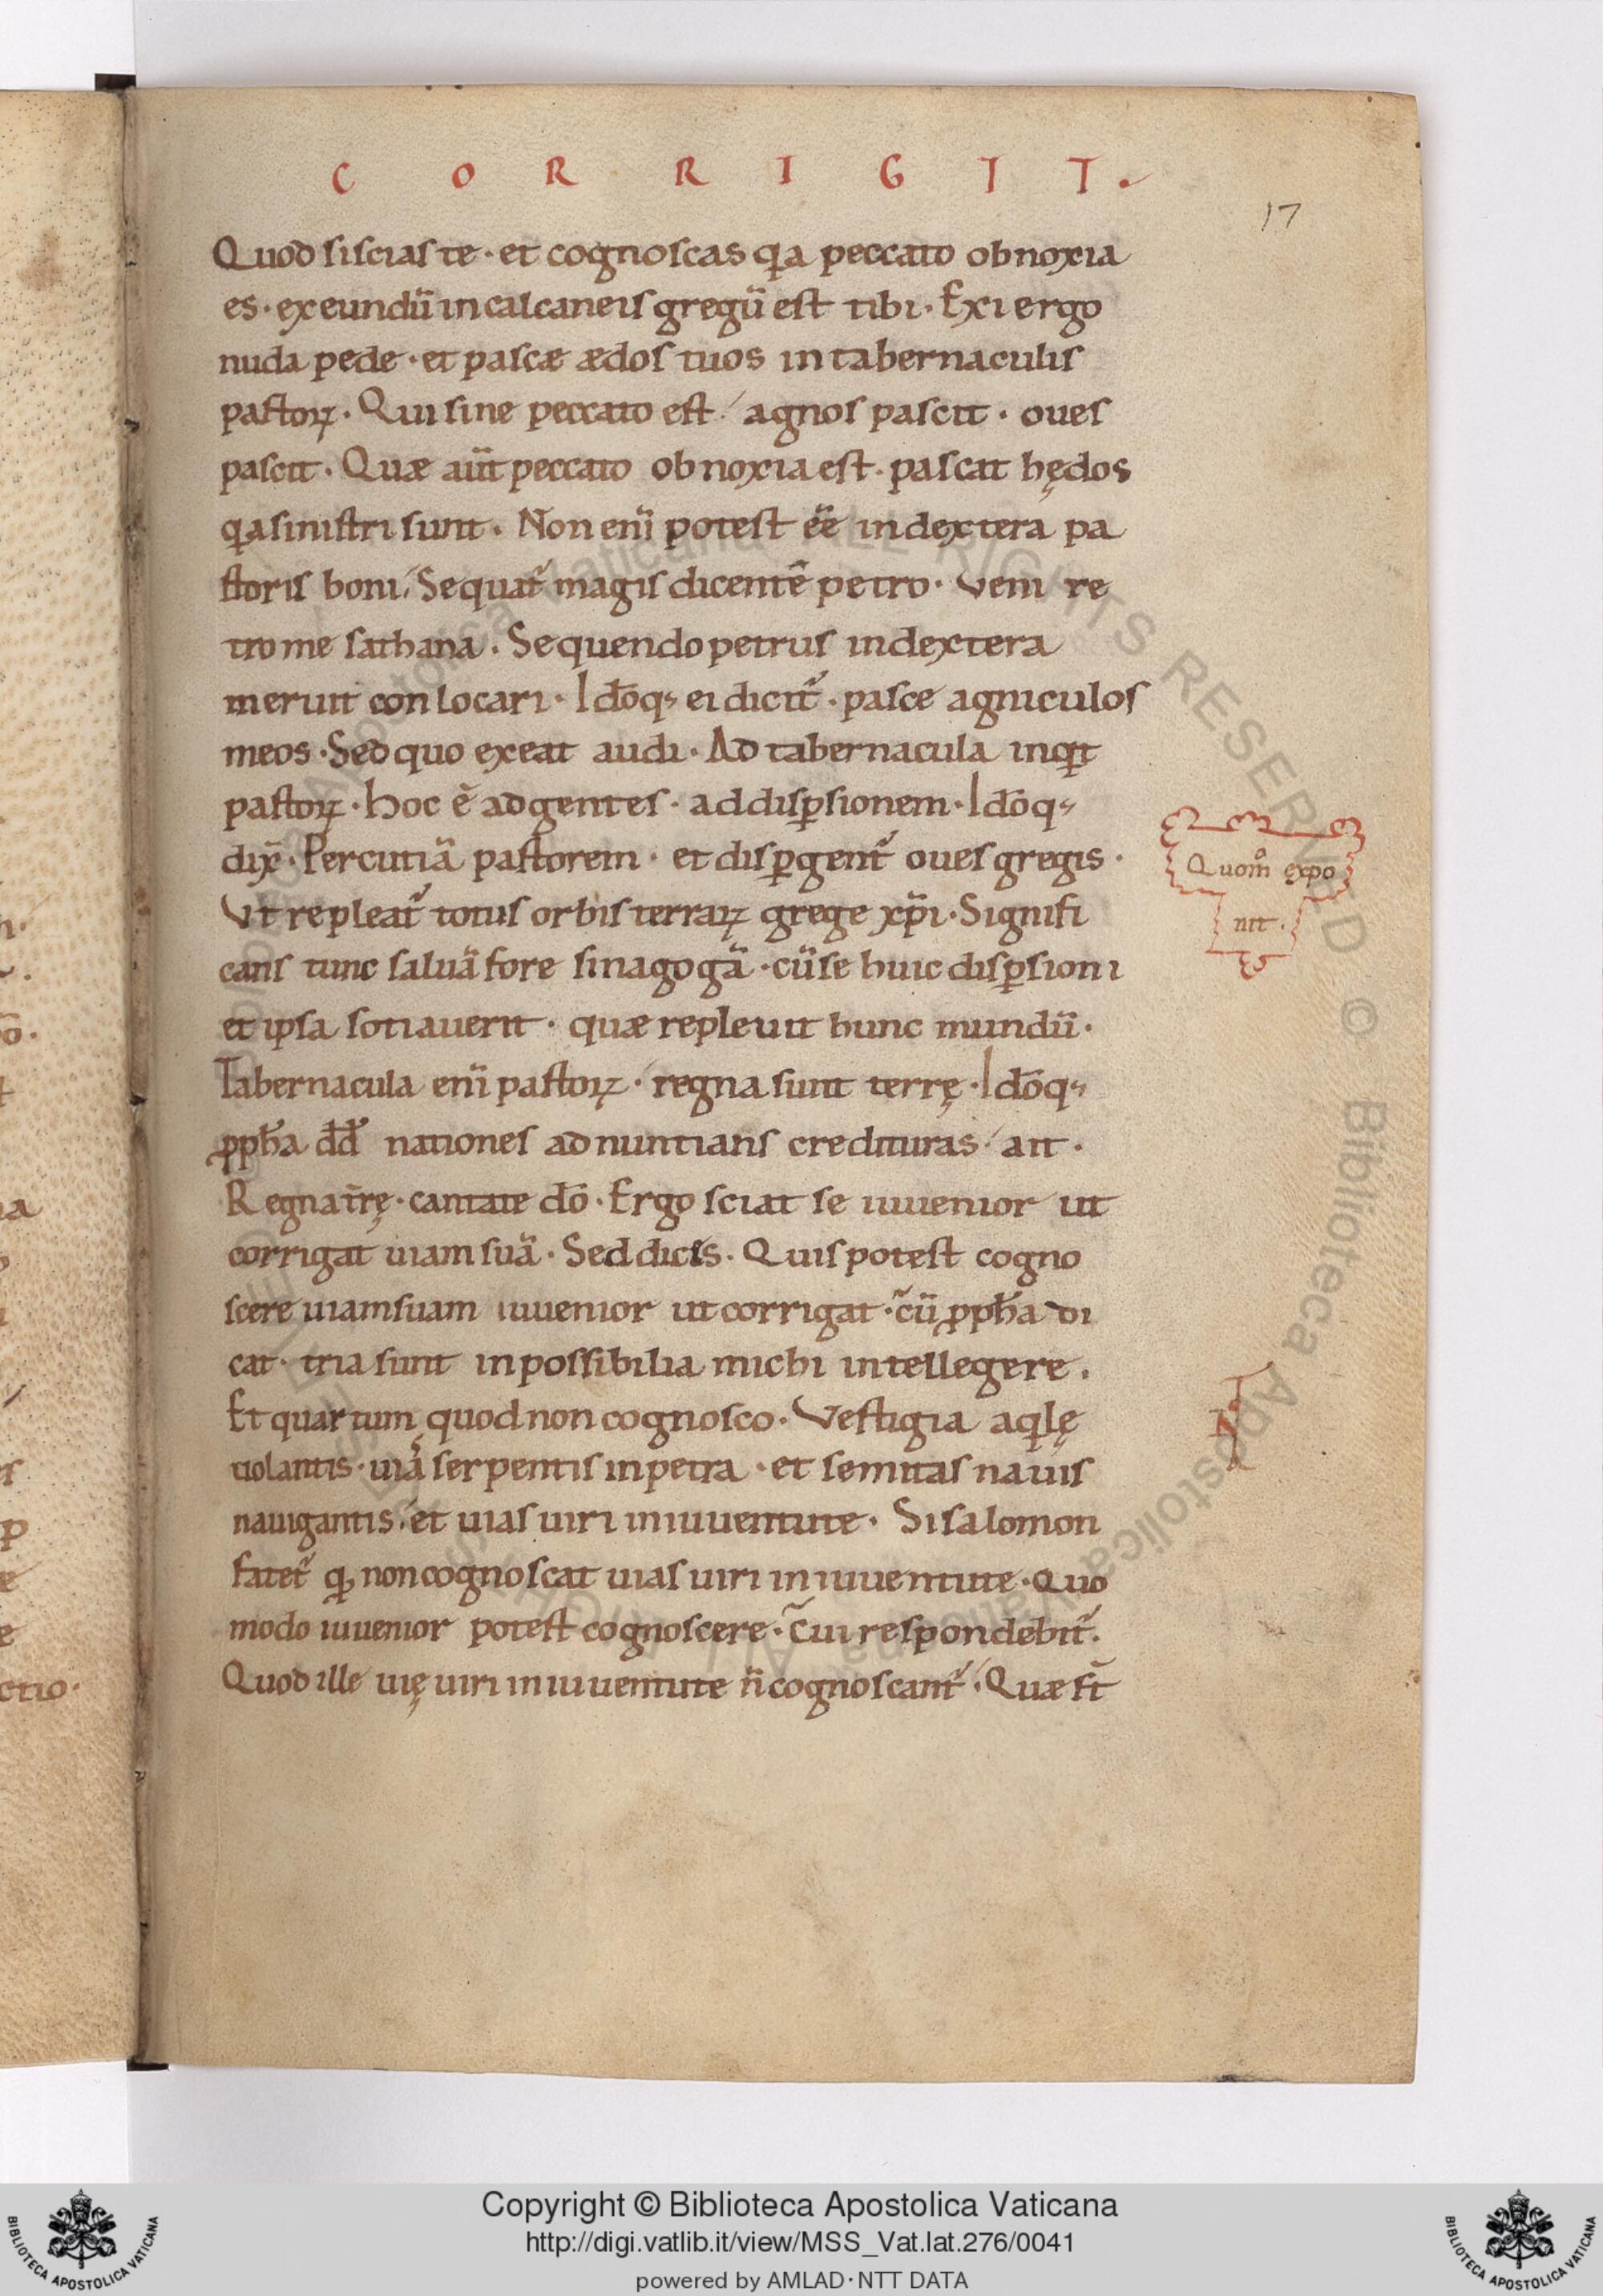 C O R R I G I T .
17
Quod si scias te · et cognoscas qa peccato obnoxia
es · exeundū in calcaneis gregū est tibi · Exi ergo
nuda pede · et pascæ ædos tuos in tabernaculis
pastoꝝ · Qui sine peccato est · agnos pascit · oues
pascit · Quæ aūt peccato obnoxia est · pascat hędos
qa sinistri sunt · Non enī potest ēē in dextera pa
storis boni · Sequat᷑ magis dicentē petro · Veni re
tro me sathana · Sequendo petrus in dextera
meruit conlocari · Idōq; ei dicit᷑ · pasce agniculos
meos · Sed quo exeat audi · Ad tabernacula inqt
pastoꝝ · hoc ē ad gentes · ad disꝑsionem · Idōq;
dix̄ · Percutiā pastorem · et disꝑgent᷑ oues gregis ·
Vt repleat᷑ totus orbis terraꝝ grege xp̄i · Signifi
cans tunc saluā fore sinagogā · cū se huic disꝑsioni
et ipsa sotiauerit · quæ repleuit hunc mundū ·
Quom̊ expo
nit ·
Tabernacula enī pastoꝝ · regna sunt terrę · Idōq;
ꝓph̄a dd̄ nationes adnuntians credituras · ait ·
Regna tr̄ę · cantate dō · Ergo sciat se iuuenior ut
corrigat uiam suā · Sed dicis · Quis potest cogno
scere uiam suam iuuenior ut corrigat · cū ꝓph̄a di
cat · tria sunt inpossibilia michi intellegere .
Et quartum quod non cognosco · Vestigia aqlę
uolantis · uiā serpentis in petra · et semitas nauis
nauigantis · et uias uiri in iuuentute · Si salomon
fatet᷑ ꝙ non cognoscat uias uiri in iuuentute · Quo
modo iuuenior potest cognoscere · Cui respondebit᷑ ·
Quod ille uię uiri in iuuentute n̄ cognoscant᷑ · Quæ st̄
Copyright © Biblioteca Apostolica Vaticana
http://digi.vatlib.it/view/MSS_Vat.lat.276/0041
powered by AMLAD·NTT DATA